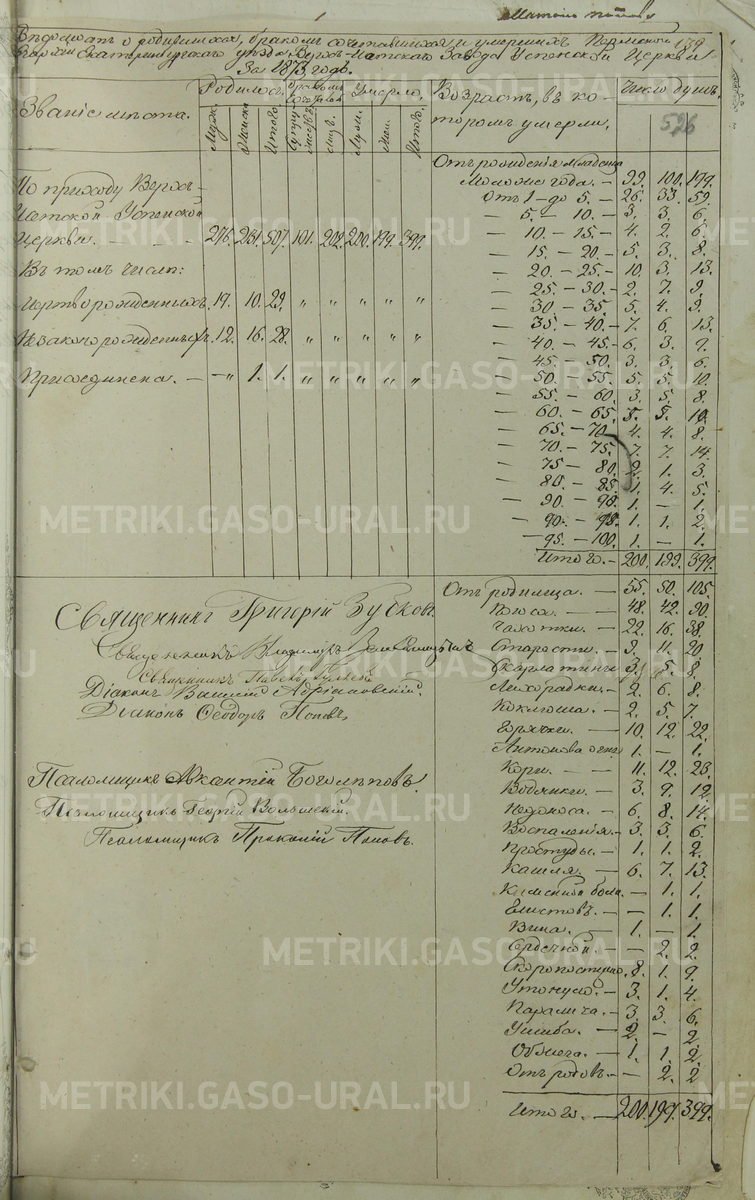 Ведомость о родившихся, бракомъ сочетавшихся и умершихъ Пермской
Епархiи Екатеринбургскаго уѣзда, Верхъ-Исетскаго Завода Успенской Церкви
За 1873 годъ.
Званiе мѣста. Родилось. Бракомъ Умерло. Возрастъ, въ ко- Число душъ.
Муж. Женск. Итого. Муж. Жен. Итого. торомъ умерли, 526
Отъ рожденiя Младенца
Моложе года. — 99. 100. 199.
По приходу Верхъ- отъ 1 — до 5. — 26. 33. 59.
Исетской Успенской — 5 — 10. — 3. 3. 6.
Церкви. — — — 276. 231. 507. 101. 202. 200. 199. 399. — 10. — 15 — 4. 2. 6.
— 15. — 20. — 5. 3. 8.
Въ томъ числѣ: — 20. — 25. — 10. 3. 13.
— 25. — 30 — 2. 7. 9.
Мертворожденныхъ. 19. 10. 29. " " " " " — 30 — 35. 5. 4. 9.
— 35. — 40. — 7. 6. 13.
Незаконорожденныхъ. 12. 16. 28. " " " " " — 40. — 45. — 6. 3. 9.
— 45. — 50. 3. 3. 6.
Присоединена. — — " 1. 1. " " " " " — 50. — 55. — 5. 5. 10.
— 55. — 60. 3. 5. 8.
— 60. — 65. 5. 5. 10.
— 65. — 70. 4. 4. 8.
— 70. — 75. 7. 7. 14.
— 75 — 80. 2. 1. 3.
— 80. — 85. 1. 4. 5.
— 90. — 1. — 1.
— 90. — 1. 1. 2.
— 95. — 100. 1. — 1.
Итого. — 200. 199. 399.
Отъ родимца. — 55. 50. 105.
Священникъ Григорiй Зубковъ. Поноса. — 48. 42. 90.
Чахотки. — 22. 16. 38.
Священникъ Владимiръ Старости. — 9. 11. 20
Священникъ Скарлатины. 3. 5. 8.
Дiаконъ Василiй Адрiановскiй. Лихорадки. — 2. 6. 8.
Дiаконъ Ѳеодоръ Поповъ. Коклюша. — 2. 5. 7.
Горячки. — 10. 12. 22.
Антонова огня 1. — 1.
Псаломщикъ Авксентiй Боголѣповъ. Кори. — — 11. 12. 23.
Водянки. — 3. 9. 12.
Псаломщикъ Георгiй Недоноса. — 6. 8. 14.
Воспаленiя. — 3. 3. 6.
Псаломщикъ Прокопiй Поповъ. Простуды. — 1. 1. 2.
Кашля. — 6. 7. 13.
боли. — 1. 1.
Глистовъ. — — 1. 1.
Вина. — 1. — 1.
Сердечной. — — 2. 2.
Скоропостижно. 8. 1. 9.
Утонуло. — 3. 1. 4.
Паралича. — 3. 3. 6.
Ушиба. — 2. — 2.
Обжога. — 1. 1. 2.
Отъ родовъ. — — 2. 2
Итого. — 200. 199. 399.
METRIKI.GASO-URAL.RU
METRIKI.GASO-URAL.RU
METRIKI.GASO-URAL.RU
METRIKI.GASO-URAL.RU
METRIKI.GASO-URAL.RU
METRIKI.GASO-URAL.RU
METRIKI.GASO-URAL.RU